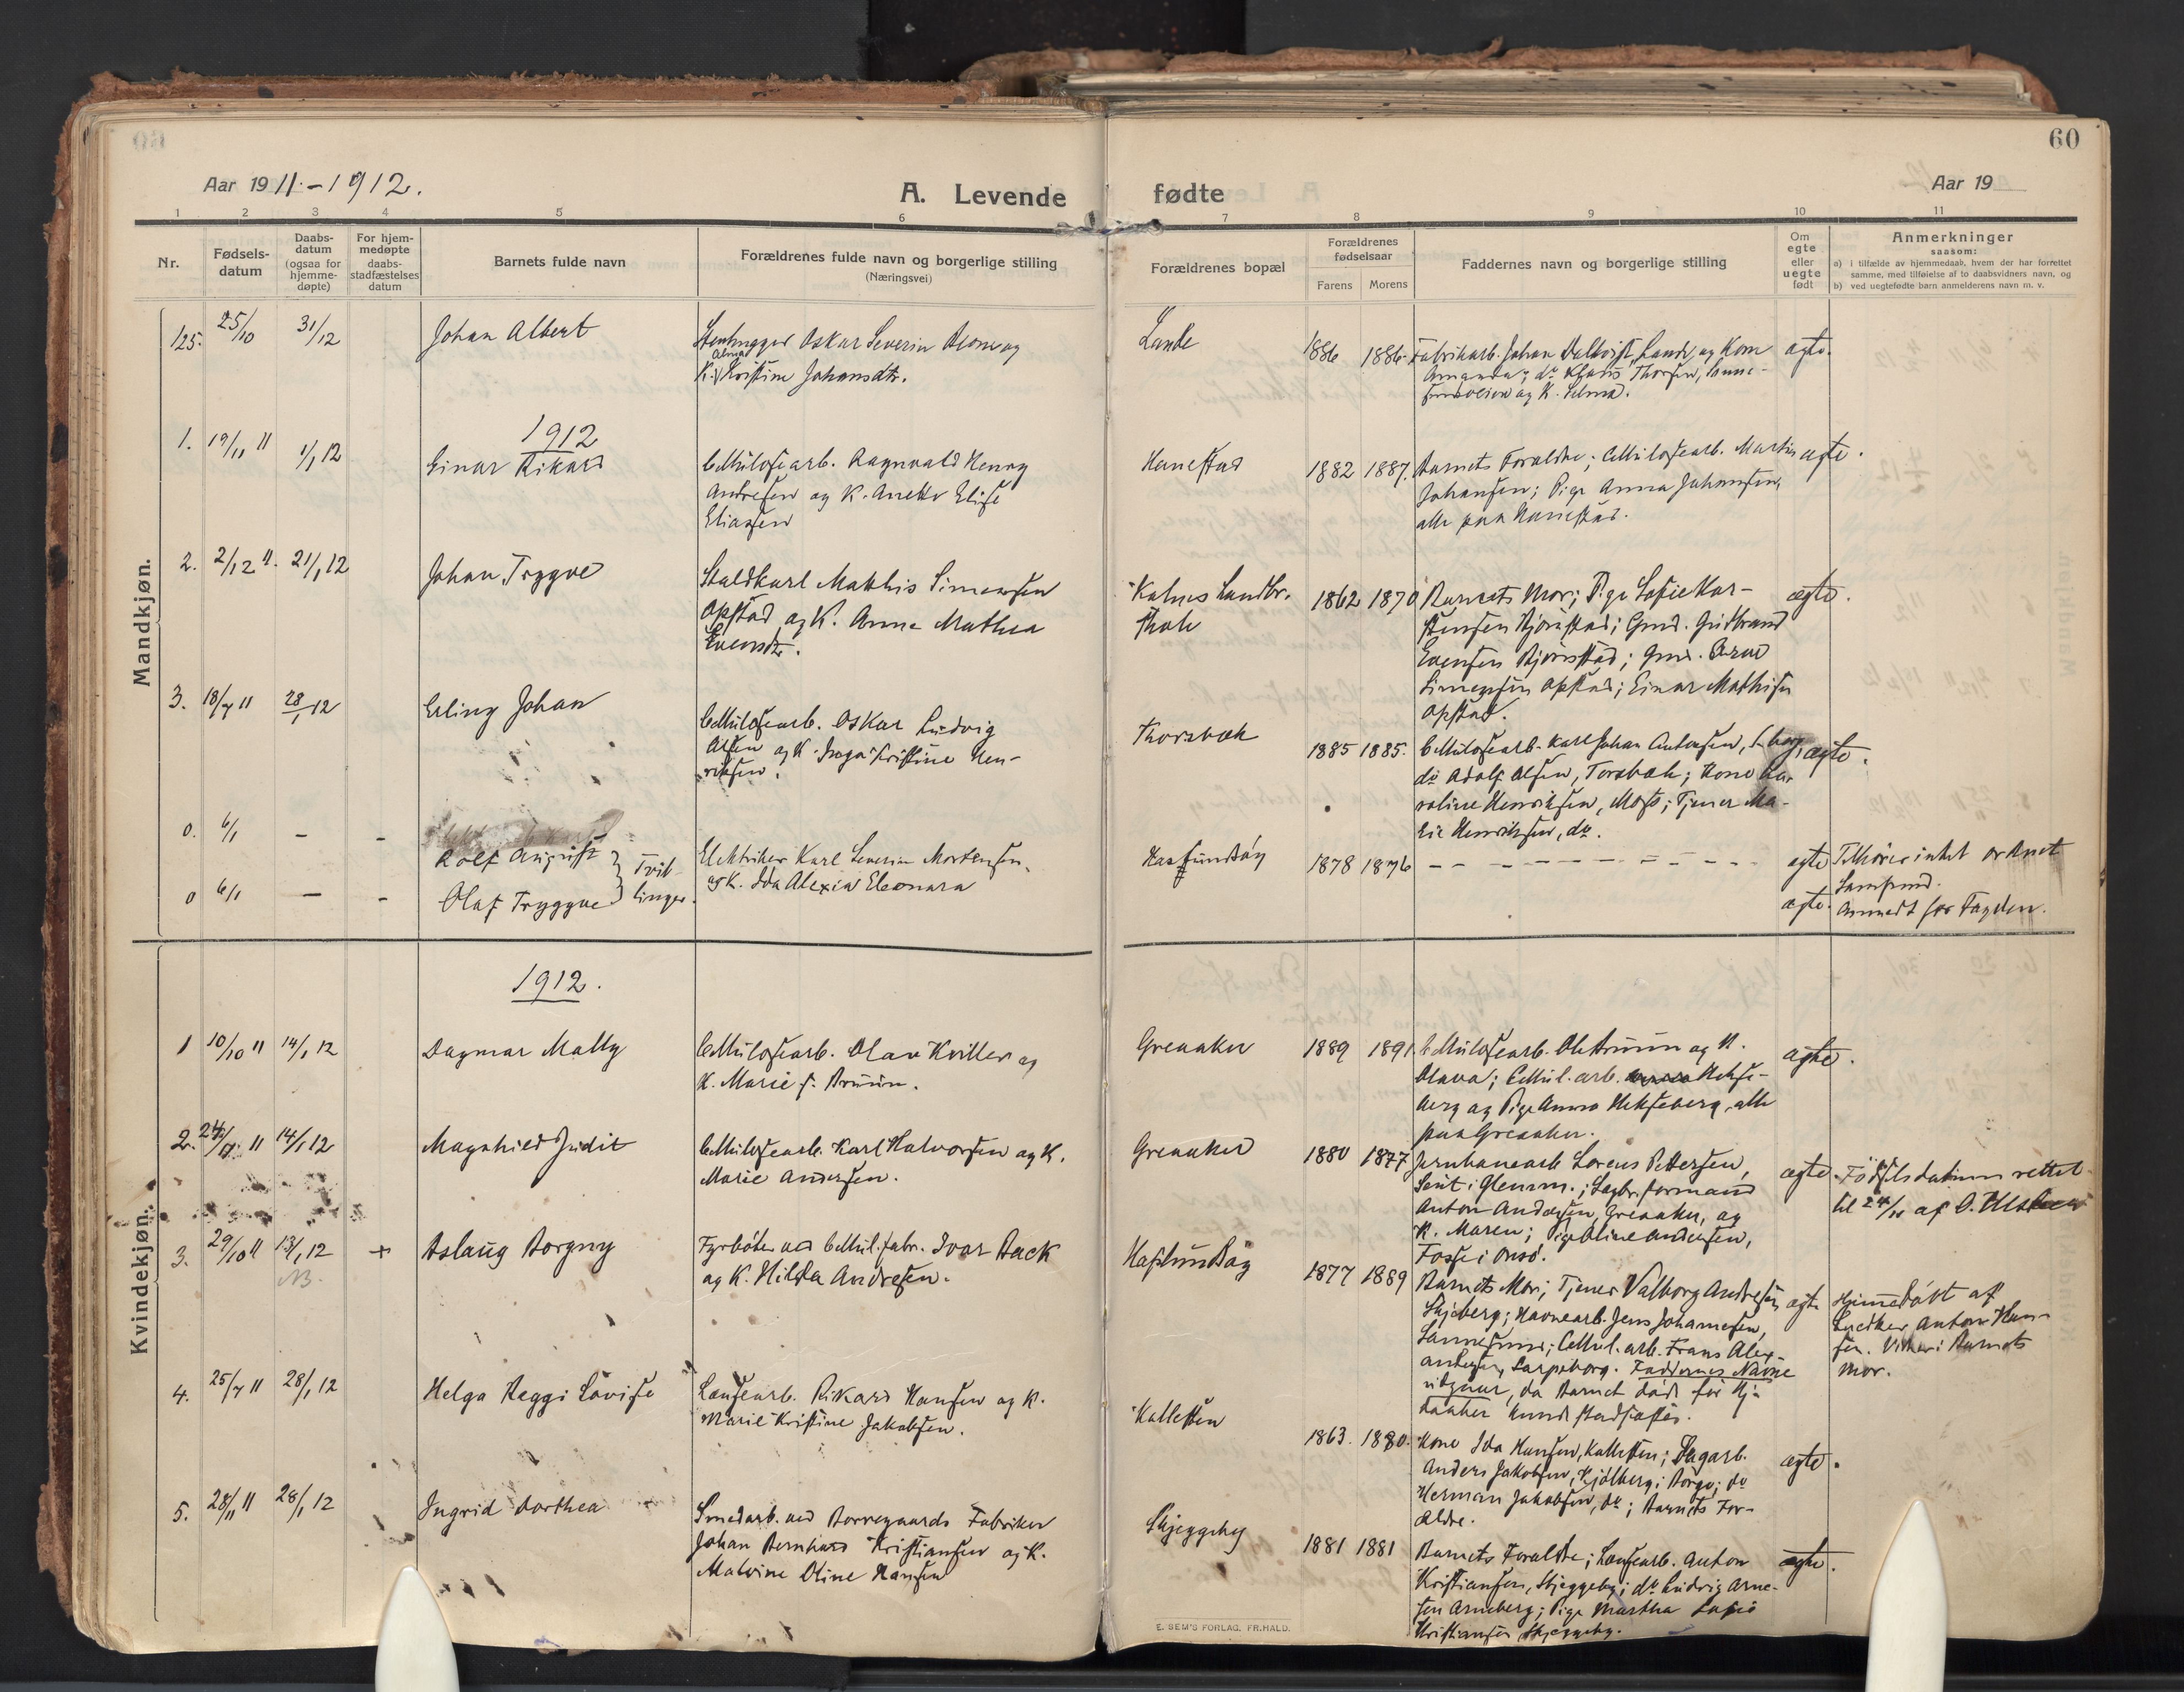 60
Aar 1911.-1912.
A. Levende fødte
Aar 19
1 2 3 4 5 6 7 8 9 10 11
Nr.
Fødsels-
datum
Daabs-
datum
(ogsaa for
hjemme-
døpte)
For hjem-
medøpte
daabs-
stadfæstelses
datum
Barnets fulde navn
Forældrenes fulde navn og borgerlige stilling
(Næringsvei)
Forældrenes bopæl
Forældrenes
fødselsaar
Farens Morens
Faddernes navn og borgerlige stilling
Om
egte
eller
uegte
født
Anmerkninger
saasom:
a) i tilfælde av hjemmedaab, hvem der har forrettet
samme, med tilføielse af to daabsvidners navn, og
b) ved uegtefødte børn anmelderens navn m. v.
Mandkjøn.
125. 25/10 31/12 - Johan Albert
Stenhugger Oskar Severin
Alma
K. Kristine Johansdtr.
Lande
1886 1886.
Fabrikarb. Johan Dalkvist, Lande, og Kone
Amanda; do Thorsen,
og K. Selma.
ægte.
1912
1. 19/11 11 1/1 12 - Einar Rikard
Cellulosearb. Ragnvald Henry
Andresen og K. Anette Elise
Eliasen
Hanestad
1882 1887.
Barnets Foraldre; Cellulosearb. Martin
Johansen; Pige Anna Johansen,
alle paa Hanestad.
ægte.
2. 2/12 11. 21/1 12 - Johan Trygve
Staldkarl Mathis Simensen
Opstad og K. Anne Mathea
Evensdtr.
Kalnes Landbr.
skole
1862 1870
Barnets Mor; Pige Sofie Kar-
stensen Bjørnstad; Gmd. Gudbrand
Evensen Bjørnstad; Gmd. Arne
Simensen Opstad; Einar Mathisen
Opstad.
ægte.
3. 18/7 11 28/1 12 - Erling Johan
Cellulosearb. Oskar Ludvig
Olsen og K. Inga Kristine Hen-
riksen.
Thorsbæk
1885 1885.
Cellulosearb. Karl Johan Antonsen, S.borg,
do Adolf Olsen, Torsbæk; Kone Ka-
roline Henriksen, Moss; Tjener Ma-
rie Henriksen, do.
ægte.
0. 6/1 - - Rolf August
0 6/1 - - Olaf Tryggve
Tvil-
linger.
Elektriker Karl Severin Mortensen
og K. Ida Alexia Eleonara
Hafslundsøy
1878 1876
- - - - - - - - - -
ægte
ægte.
Tilhører intet ordnet
Samfund.
Anmeldt for Fogden.
Kvindekjøn.
1912.
1 10/10 11 14/1 12 Dagmar Mally
Cellulosearb. Olav Kviller og
K. Marie f. Bruun.
Greaaker
1889 1891.
Cellulosearb. Ole Bruun og K.
Olava; Cellul. arb. Hekse-
berg og Pige Anna Hekseberg, alle
paa Greaaker.
ægte.
2. 24/11 11 14/1 12 Magnhild Judit
Cellulosearb. Karl Halvorsen og K.
Marie Andersen.
Greaaker
1880 1877
Jernbanearb. Lorens Pettersen,
Seut i Glemm.; Lagbr. formand
Anton Andersen, Greaaker, og
K. Maren; Pige Oline Andersen,
Fosse i Onsø.
ægte.
Fødselsdatum rettet
til 24/11 af
3. 29/10 11 13/1 12 + Aslaug Borgny
NB.
Fyrbøter ved Cellul. fabr. Ivar Back
og K. Hilda Andresen.
Hafslundsøy
1877 1889
Barnets Mor; Tjener Valborg Andresen,
Skjeberg; Havnearb. Jens Johannesen,
Sannesund; Cellul. arb. Frans Alex-
andersen, Sarpsborg. Faddernes Navne
utgaar, da Barnet døde før Hj-
daaben kunde stadfæstes.
ægte
Hjemmedøbt af
Snedker Anton Han-
sen. Vidner: Barnets
Mor.
4. 25/7 11 28/1 12 Helga Reggi Lovise
Lensearb. Rikard Hansen og K.
Marie Kristine Jakobsen.
Kallestén
1863. 1880.
Kone Ida Hansen, Kallesten; Dagarb.
Anders Jakobsen, Kjølberg i Borge; do
Herman Jakobsen, do; Barnets For-
ældre.
ægte.
5. 28/11 11 28/1 12 Ingrid Dorthea
Smedarb. ved Borregaards Fabriker
Johan Bernhard Kristiansen og K.
Malvine Oline Hansen
Skjeggeby
1881 1881
Barnets Foraldre; Lensearb. Anton
Kristiansen, Skjeggeby; do Ludvig Arne-
sen Arneberg; Pige Martha Sofie
Kristiansen Skjeggeby.
ægte.
E. SEM'S FORLAG, FR.HALD.